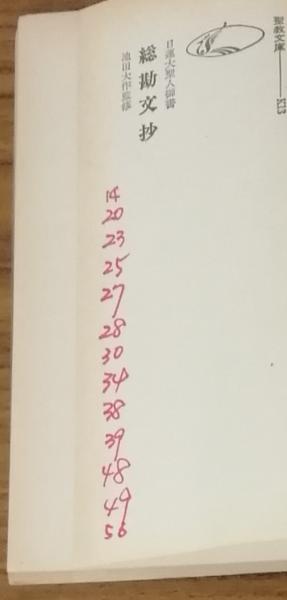 聖教文庫——K13
日蓮大聖人御書
総勘文抄
池田大作監修
14
20
23
25
27
28
30
34
38
39
48
49
56